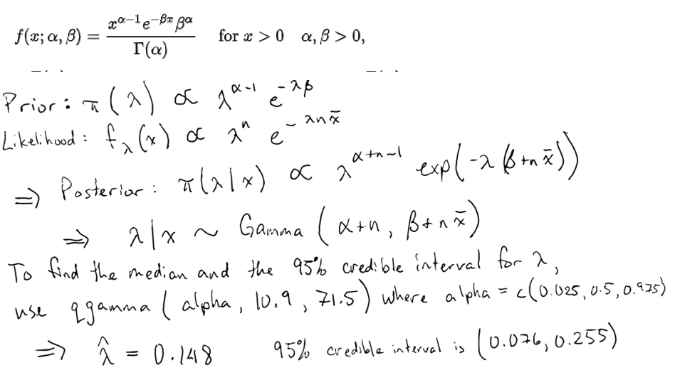 f(x; α, β) = x^{α−1} e^{−βx} β^α / Γ(α) for x > 0 α, β > 0,
Prior: π(λ) ∝ λ^{α-1} e^{-λβ}
Likelihood: f_λ(x) ∝ λ^n e^{-λn x̄}
⇒ Posterior: π(λ|x) ∝ λ^{α+n-1} exp(-λ(β+n x̄))
⇒ λ|x ~ Gamma(α+n, β+n x̄)
To find the median and the 95% credible interval for λ,
use qgamma(alpha, 10.9, 71.5) where alpha = c(0.025, 0.5, 0.975)
⇒ λ̂ = 0.148 95% credible interval is (0.076, 0.255)